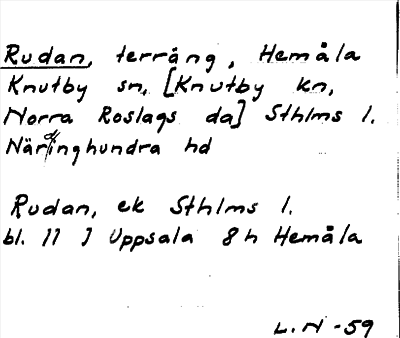 Rudan, terräng, Hemåla
Knutby sn, [Knutby kn,
Norra Roslags da] Sthlms l.
Närdinghundra hd
Rudan, ek Sthlms l.
bl. 11 J Uppsala 8h Hemåla
L.N -59